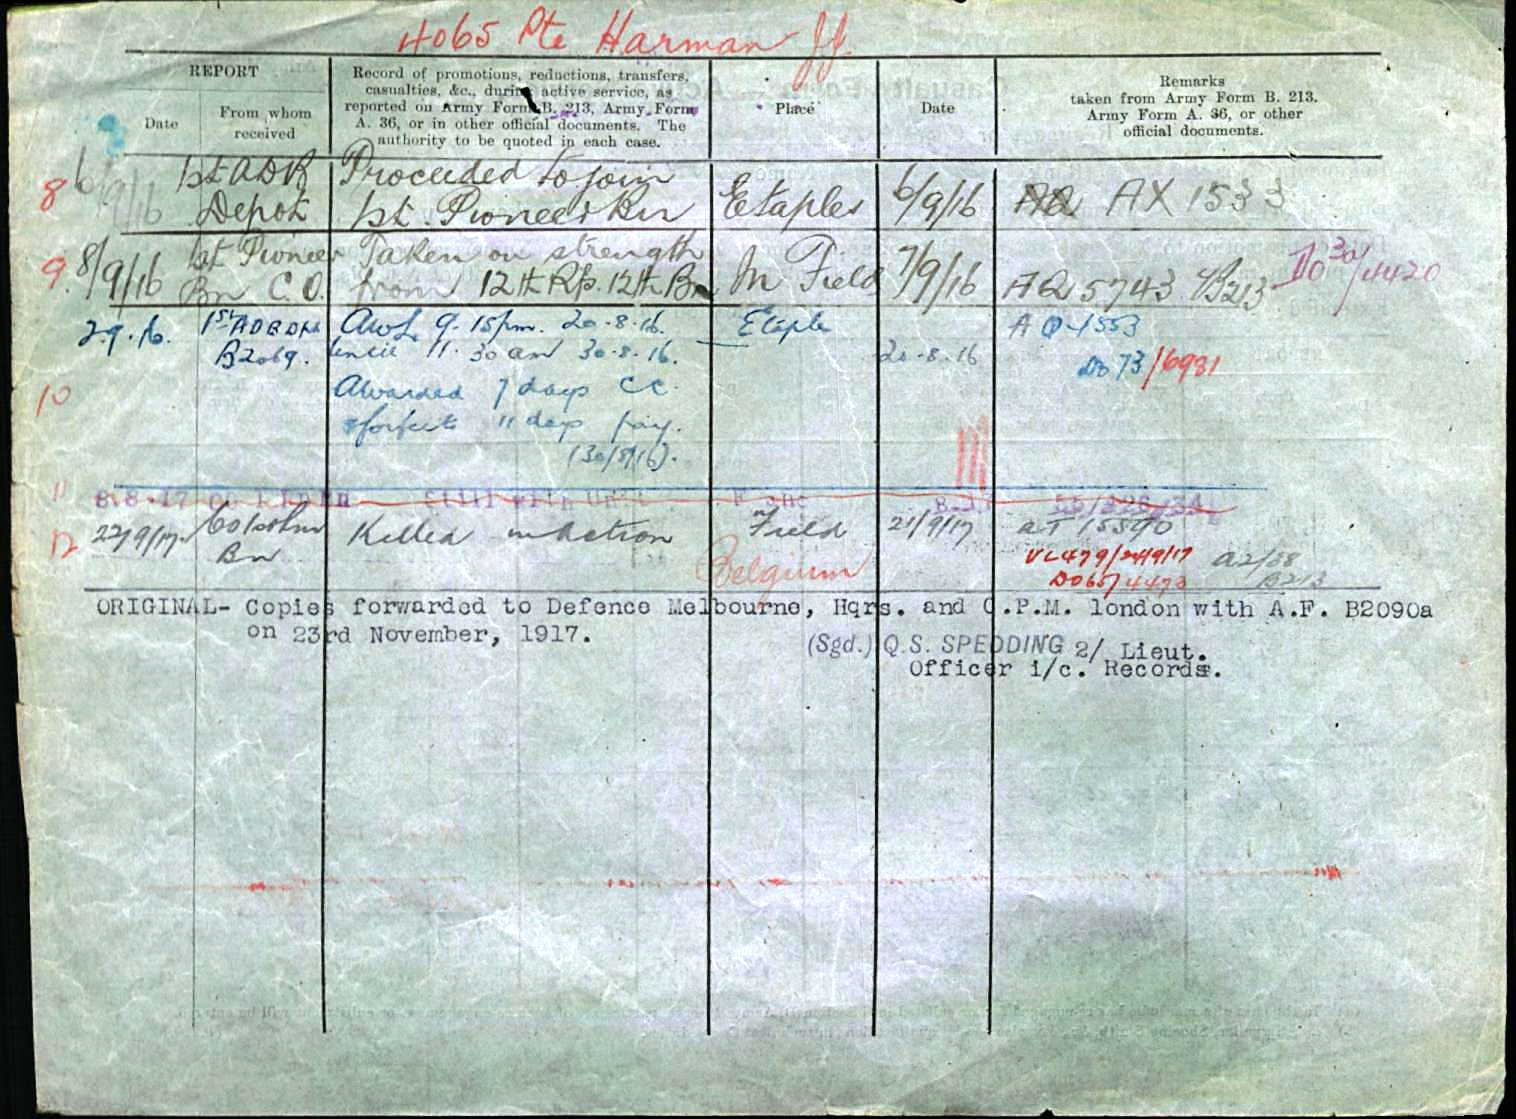 4065 Pte Harman J.J.
REPORT
Date
From whom
received
Record of promotions, reductions, transfers,
casualties, &c., during active service, as
reported on Army Form B. 213, Army Form
A. 36, or in other official documents. The
authority to be quoted in each case.
Place
Date
Remarks
taken from Army Form B. 213.
Army Form A. 36, or other
official documents.
8 6/9/16 1st ADB Proceeded to join Etaples 6/9/16 AX 1533
Depot 1st Pioneer Bn
9. 8/9/16 1st Pioneer Taken on strength In Field 7/9/16 AQ 5743 B213 DO 30/4420
Bn C.O. from 12th Rfts. 12th Bn
2.9.16. 1st Awl 9.15pm. 20.8.16. Etaple A 1553
B2069. until 11.30am 30.8.16. 20.8.16 Do 73/6981
10 Awarded 7 days CC.
forfeits 11 days pay.
(30/8/16).
11 8.8.17 Still with Unit
12 22/9/17 Co 1st Pnr Killed in Action Field 21/9/17 15590
Bn Belgium VL479/24/9/17 A2/58
DO65/4473 B213
ORIGINAL- Copies forwarded to Defence Melbourne, Hqrs. and C.P.M. london with A.F. B2090a
on 23rd November, 1917.
(Sgd.) Q.S. SPEDDING 2/ Lieut.
Officer i/c. Records.